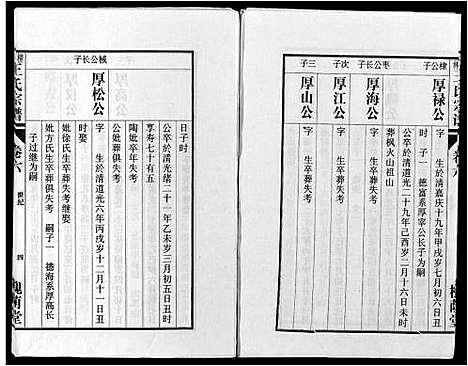 棣公子
厚禄公
字 生於清嘉庆十九年甲戌岁七月初六日戌时
公卒於清道光二十九年己酉岁二月十六日未时
嗣子一 德富系厚宰公长子为嗣
葬枫火山祖山
枣公长子
厚海公
字 生卒葬失考
次子
厚江公
字 生卒葬失考
三子
厚山公
字 生卒葬失考
王氏宗谱
卷六
世纪
四
槐荫堂
槭公长子
厚松公
字 生於清道光六年丙戌岁十二月十一日
日子时
公卒於清光绪二十一年乙未岁三月初五日丑时
享寿七十有五
陶妣卒年失考
公妣葬俱失考
时娶
妣方氏生卒葬失考 嗣子一 德海系厚高长
妣徐氏生卒葬俱失考继娶
子过继为嗣